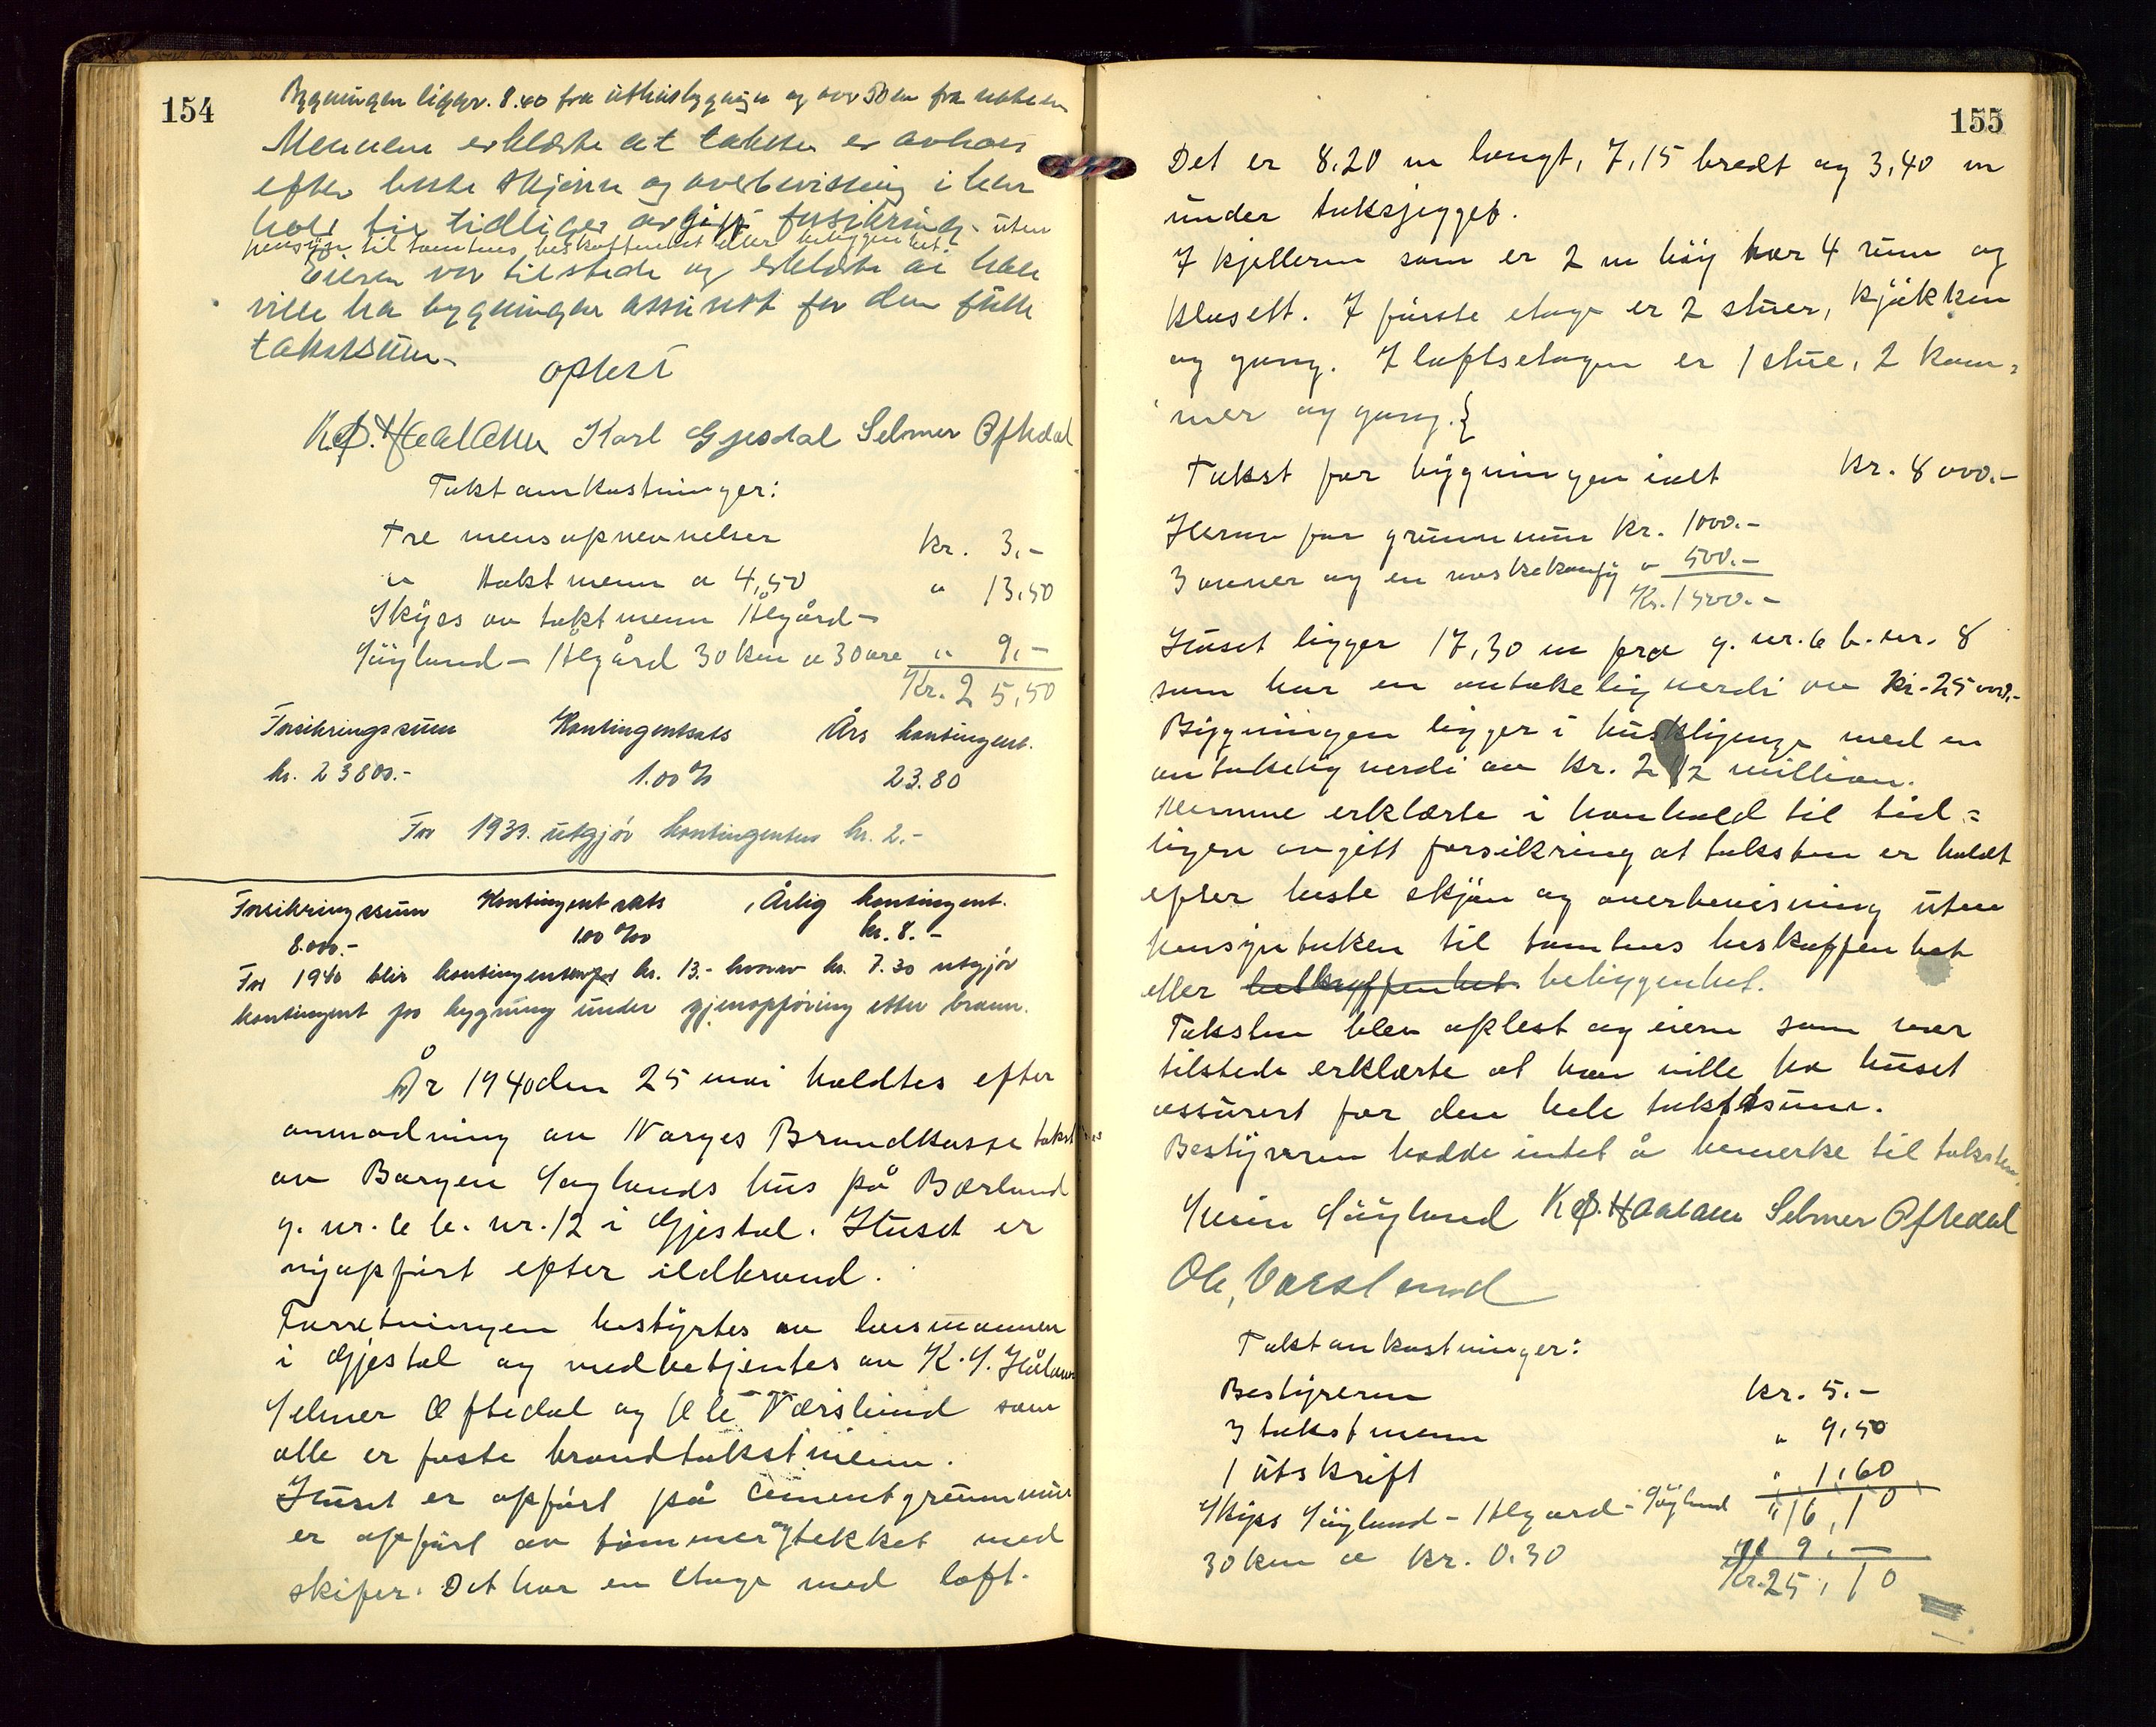 154
Bygningen ligger. 8.40 fra uthusbygnign og over 50 m fra naboen
Mennene erklærte at taksten er avholt
efter beste skjønn og overbevisning i hen
hold til tidligere avgitt forsikring uten
hensyn til tomtens beskaffenhet eller beliggenhet.
Eieren var tilstede og erklærte at han
ville ha bygningen assurert for den fulle
takstsum.
Oplest
K. Ø. Haaland Karl Gjesdal Selmer Oftedal
Takstomkostninger:
Tre mensopnevnelser kr. 3,-
" takstmenn a 4,50 " 13,50
Skyss av takstmenn Ålgård-
Søyland - Ålgård 30 km a 30 øre " 9,-
Kr. 25,50
Forsikringssum Kontingentsats Års kontingent.
kr. 23800.- 1.00 ‰ 23.80
For 1939. utgjør kontingenten kr. 2.-
Forsikringssum Kontingentsats Årlig kontingent.
8.000.- 1.00 ‰ kr. 8.-
For 1940 blir kontingenten kr. 13.- hvorav kr. 7.30 utgjør
kontingent for bygning under gjenopføring etter brann.
År 1940 den 25 mai holdtes efter
anmodning av Norges Brandkasse takst
av Borgen Søylands hus på Bærland
g. nr. 6 b. nr. 12 i Gjesdal. Huset er
nyopført efter ildbrand.
Forretningen bestyrtes av lensmannen
i Gjesdal og medbetjentes av K. S. Håland
Selmer Oftedal og Ole Værsland som
alle er faste brandtakstmenn.
Huset er opført på cementgrunnmur
er opført av tømmer og tekket med
skifer. Det har en etage med loft.
155
Det er 8,20 m langt, 7,15 bredt og 3,40 m
under takskjegget.
I kjelleren som er 2 m høy har 4 rum og
klosett. I første etage er 2 stuer, kjøkken
og gang. I loftsetagen er 1 stue, 2 kam=
mer og gang.
Takst for bygningen ialt Kr. 8000.-
Herav for grunnmur Kr. 1000.-
3 ovner og en vaskekomfy " 500.-
Kr. 1500.-
Huset ligger 17,30 m fra g. nr. 6 b. nr. 8
som har en antakelig verdi av kr. 25000,-
Bygningen ligger i husklynge med en
antakelig verdi av kr. 2 1/2 million.
Mennene erklærte i henhold til tid=
ligere avgitt forsikring at taksten er holdt
efter beste skjøn og overbevisning uten
hensyntaken til tomtens beskaffenhet
eller beskaffenhet beliggenhet.
Taksten blev oplest og eieren som var
tilstede erklærte at han ville ha huset
assurert for den hele takstsum.
Bestyreren hadde intet å bemerke til taksten
Svein Søyland K. Ø. Haaland Selmer Oftedal
Ole Værsland
Takstomkostninger:
Bestyreren kr. 5.-
3 takstmenn " 9,50
1 utskrift " 1,60
" 16,10
Skyss Søyland - Ålgård - Søyland
30 km a kr. 0.30 " 9.-
Kr. 25,10